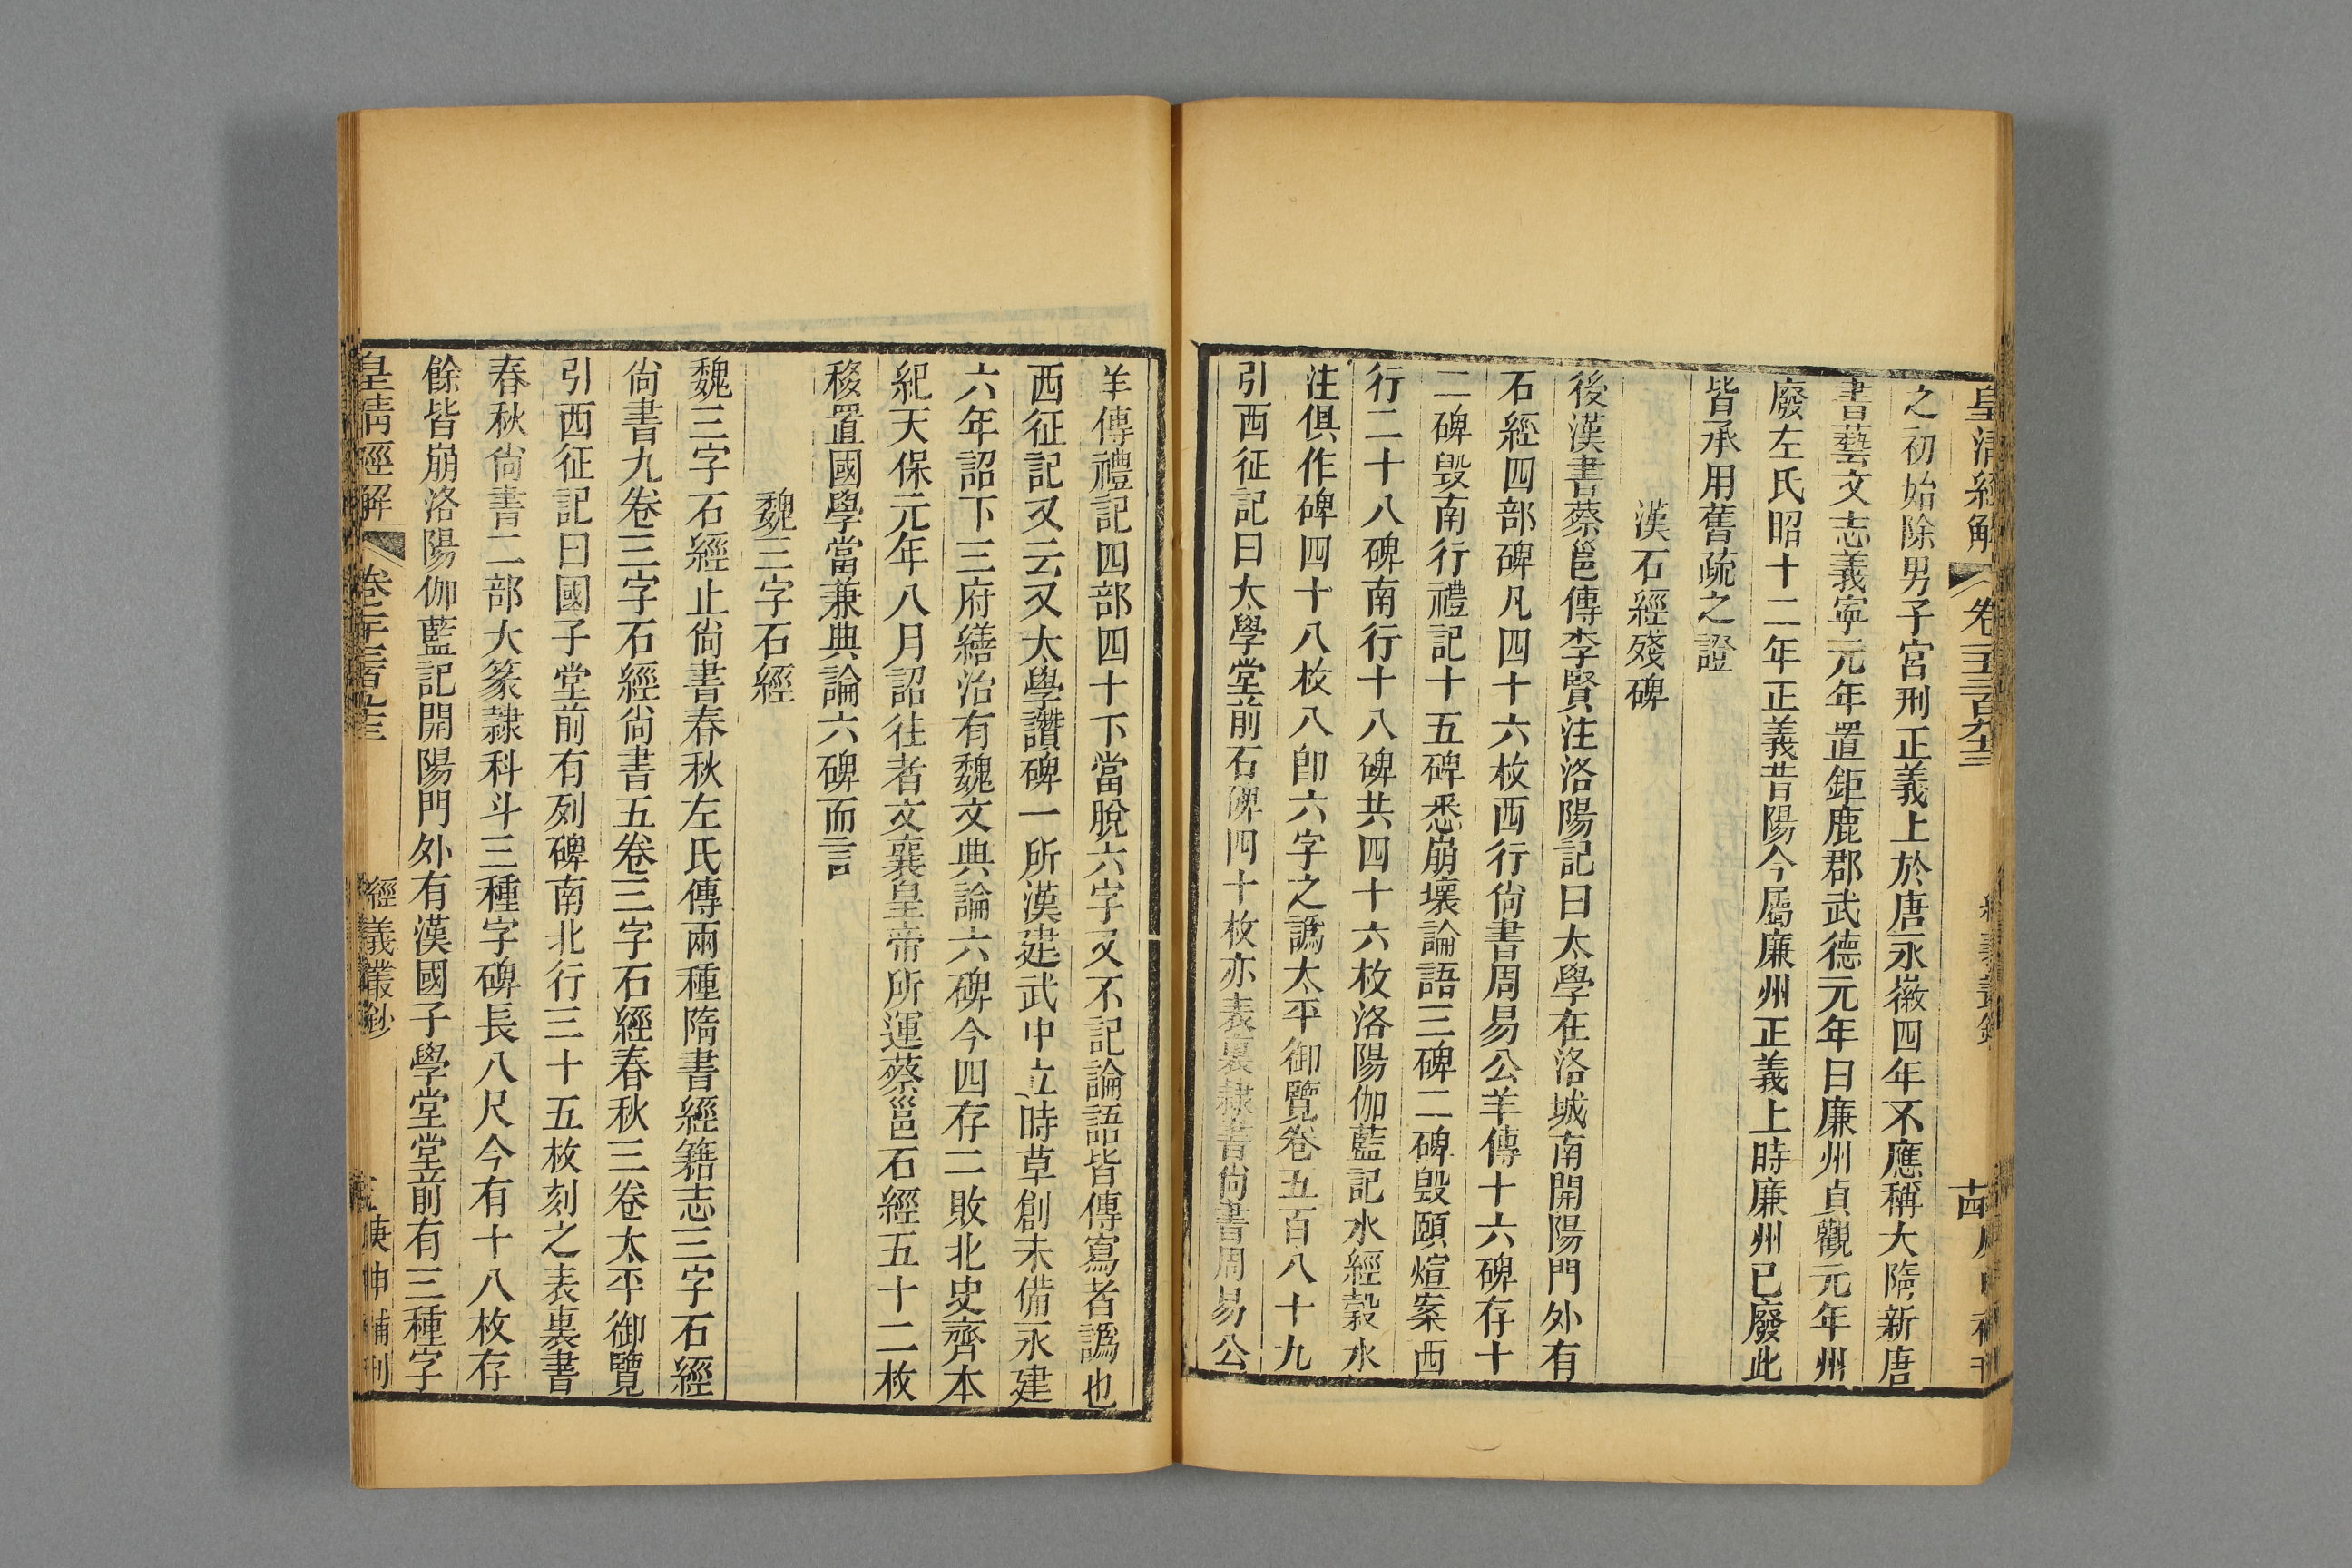 皇清經解
之初始除男子宮刑正義上於唐永徽四年不應稱大隋新唐
書藝文志義寧元年置鉅鹿郡武德元年曰廉州貞觀元年州
廢左氏昭十二年正義昔陽今屬廉州正義上時廉州已廢此
皆承用舊疏之證
漢石經殘碑
後漢書蔡邕傳李賢注洛陽記曰太學在洛城南開陽門外有
石經四部碑凡四十六枚西行尙書周易公羊傳十六碑存十
二碑毀南行禮記十五碑悉崩壞論語三碑二碑毀頤煊案西
行二十八碑南行十八碑共四十六枚洛陽伽藍記水經穀水
注俱作碑四十八枚八卽六字之譌太平御覽卷五百八十九
引西征記曰太學堂前石碑四十枚亦表裏隸書尙書周易公
羊傳禮記四部四十下當脫六字又不記論語皆傳寫者譌也
西征記又云又大學讚碑一所漢建武中立時草創未備永建
六年詔下三府繕治有魏文典論六碑今四存二敗北史齊本
紀天保元年八月詔往者文襄皇帝所運蔡邕石經五十二枚
移置國學當兼典論六碑而言
魏三字石經
魏三字石經止尙書春秋左氏傳兩種隋書經籍志三字石經
尙書九卷三字石經尙書五卷三字石經春秋三卷太平御覽
引西征記曰國子堂前有列碑南北行三十五枚刻之表裏書
春秋尙書二部大篆隸科斗三種字碑長八尺今有十八枚存
餘皆崩洛陽伽藍記開陽門外有漢國子學堂堂前有三種字
皇清經解
經義叢鈔
庚申補刊